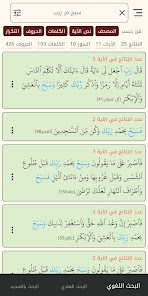 سبح مر ربب
فرز حسب: المصحف نص الآية الكلمات الحروف التكرار
النتائج 25 الآيات 11 السور 10 الكلمات 103 الحروف 426
عدد النتائج في الآية 3
قَالَ رَبِّ ٱجْعَل لِّىٓ ءَايَةً قَالَ ءَايَتُكَ أَلَّا تُكَلِّمَ ٱلنَّاسَ
ثَلَـٰثَةَ أَيَّامٍ إِلَّا رَمْزًا وَٱذْكُر رَّبَّكَ كَثِيرًا وَسَبِّحْ بِٱلْعَشِىِّ
وَٱلْإِبْكَـٰرِ [آل عمران:41]
عدد النتائج في الآية 2
فَسَبِّحْ بِحَمْدِ رَبِّكَ وَكُن مِّنَ ٱلسَّـٰجِدِينَ [الحجر:98]
عدد النتائج في الآية 3
فَٱصْبِرْ عَلَىٰ مَا يَقُولُونَ وَسَبِّحْ بِحَمْدِ رَبِّكَ قَبْلَ طُلُوعِ
ٱلشَّمْسِ وَقَبْلَ غُرُوبِهَا وَمِنْ ءَانَآئِ ٱلَّيْلِ فَسَبِّحْ
وَأَطْرَافَ ٱلنَّهَارِ لَعَلَّكَ تَرْضَىٰ [طه:130]
عدد النتائج في الآية 2
فَٱصْبِرْ إِنَّ وَعْدَ ٱللَّهِ حَقٌّ وَٱسْتَغْفِرْ لِذَنۢبِكَ وَسَبِّحْ
بِحَمْدِ رَبِّكَ بِٱلْعَشِىِّ وَٱلْإِبْكَـٰرِ [غافر:55]
عدد النتائج في الآية 2
فَٱصْبِرْ عَلَىٰ مَا يَقُولُونَ وَسَبِّحْ بِحَمْدِ رَبِّكَ قَبْلَ طُلُوعِ
البحث اللغوي البحث العادي البحث بالتصريف